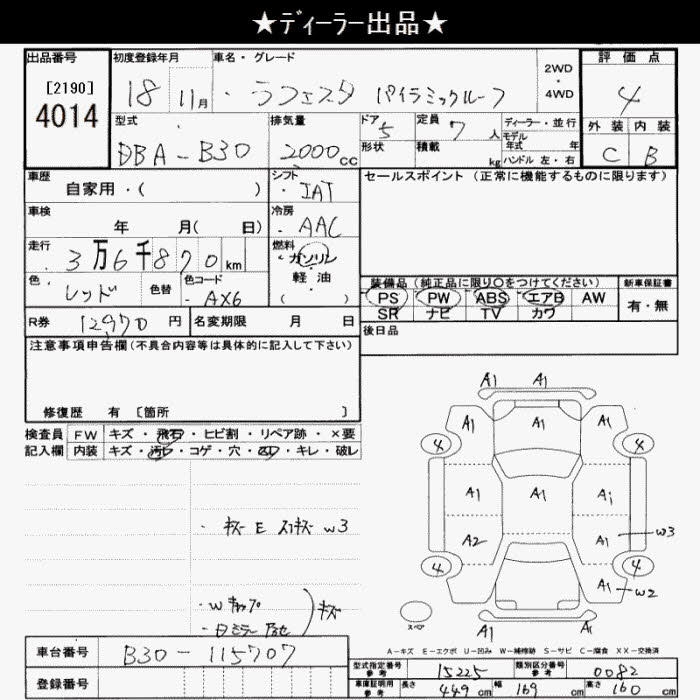 ★ディーラー出品★
出品番号 初度登録年月 車名・グレード 2WD・4WD 評価点
[2190] 18 11月 ラフェスタ パイラミックルーフ 4
4014 型式 排気量 ドア 定員 ディーラー・並行 外装 内装
DBA-B30 2000cc 5 7人 モデル年式 年 C B
形状 積載 kg ハンドル 左・右
車歴 シフト セールスポイント(正常に機能するものに限ります)
自家用・( ) IAT
車検 冷房
年 月( 日) AAC
走行 燃料
3万6千870km ガソリン
色 色替 色コード 軽油 装備品(純正品に限り○をつけてください) 新車保証書
レッド AX6 ( ) PS PW ABS エアB AW 有・無
SR ナビ TV カワ
R券 12970円 名変期限 月 日 後日品
注意事項申告欄(不具合内容等は具体的に記入して下さい)
修復歴 有 [箇所 ]
検査員 FW キズ・飛石・ヒビ割・リペア跡・×要
記入欄 内装 キズ・汚レ・コゲ・穴・凹・キレ・破レ
A1 A1
A1 A1 A1
4 4
A1 A1 A1
A2 A1 W3
キズ E スリキズ W3
4 4
A1 W2
・Wキャップ
キズ
スペア
A1 A1
A-キズ E-エクボ U-凹み W-補修跡 S-サビ C-腐食 XX-交換済
車台番号 B30-115707
型式指定番号 参考 15225 類別区分番号 参考 0082
登録番号
車庫証明用 参考 長さ 449cm 幅 169cm 高さ 160cm